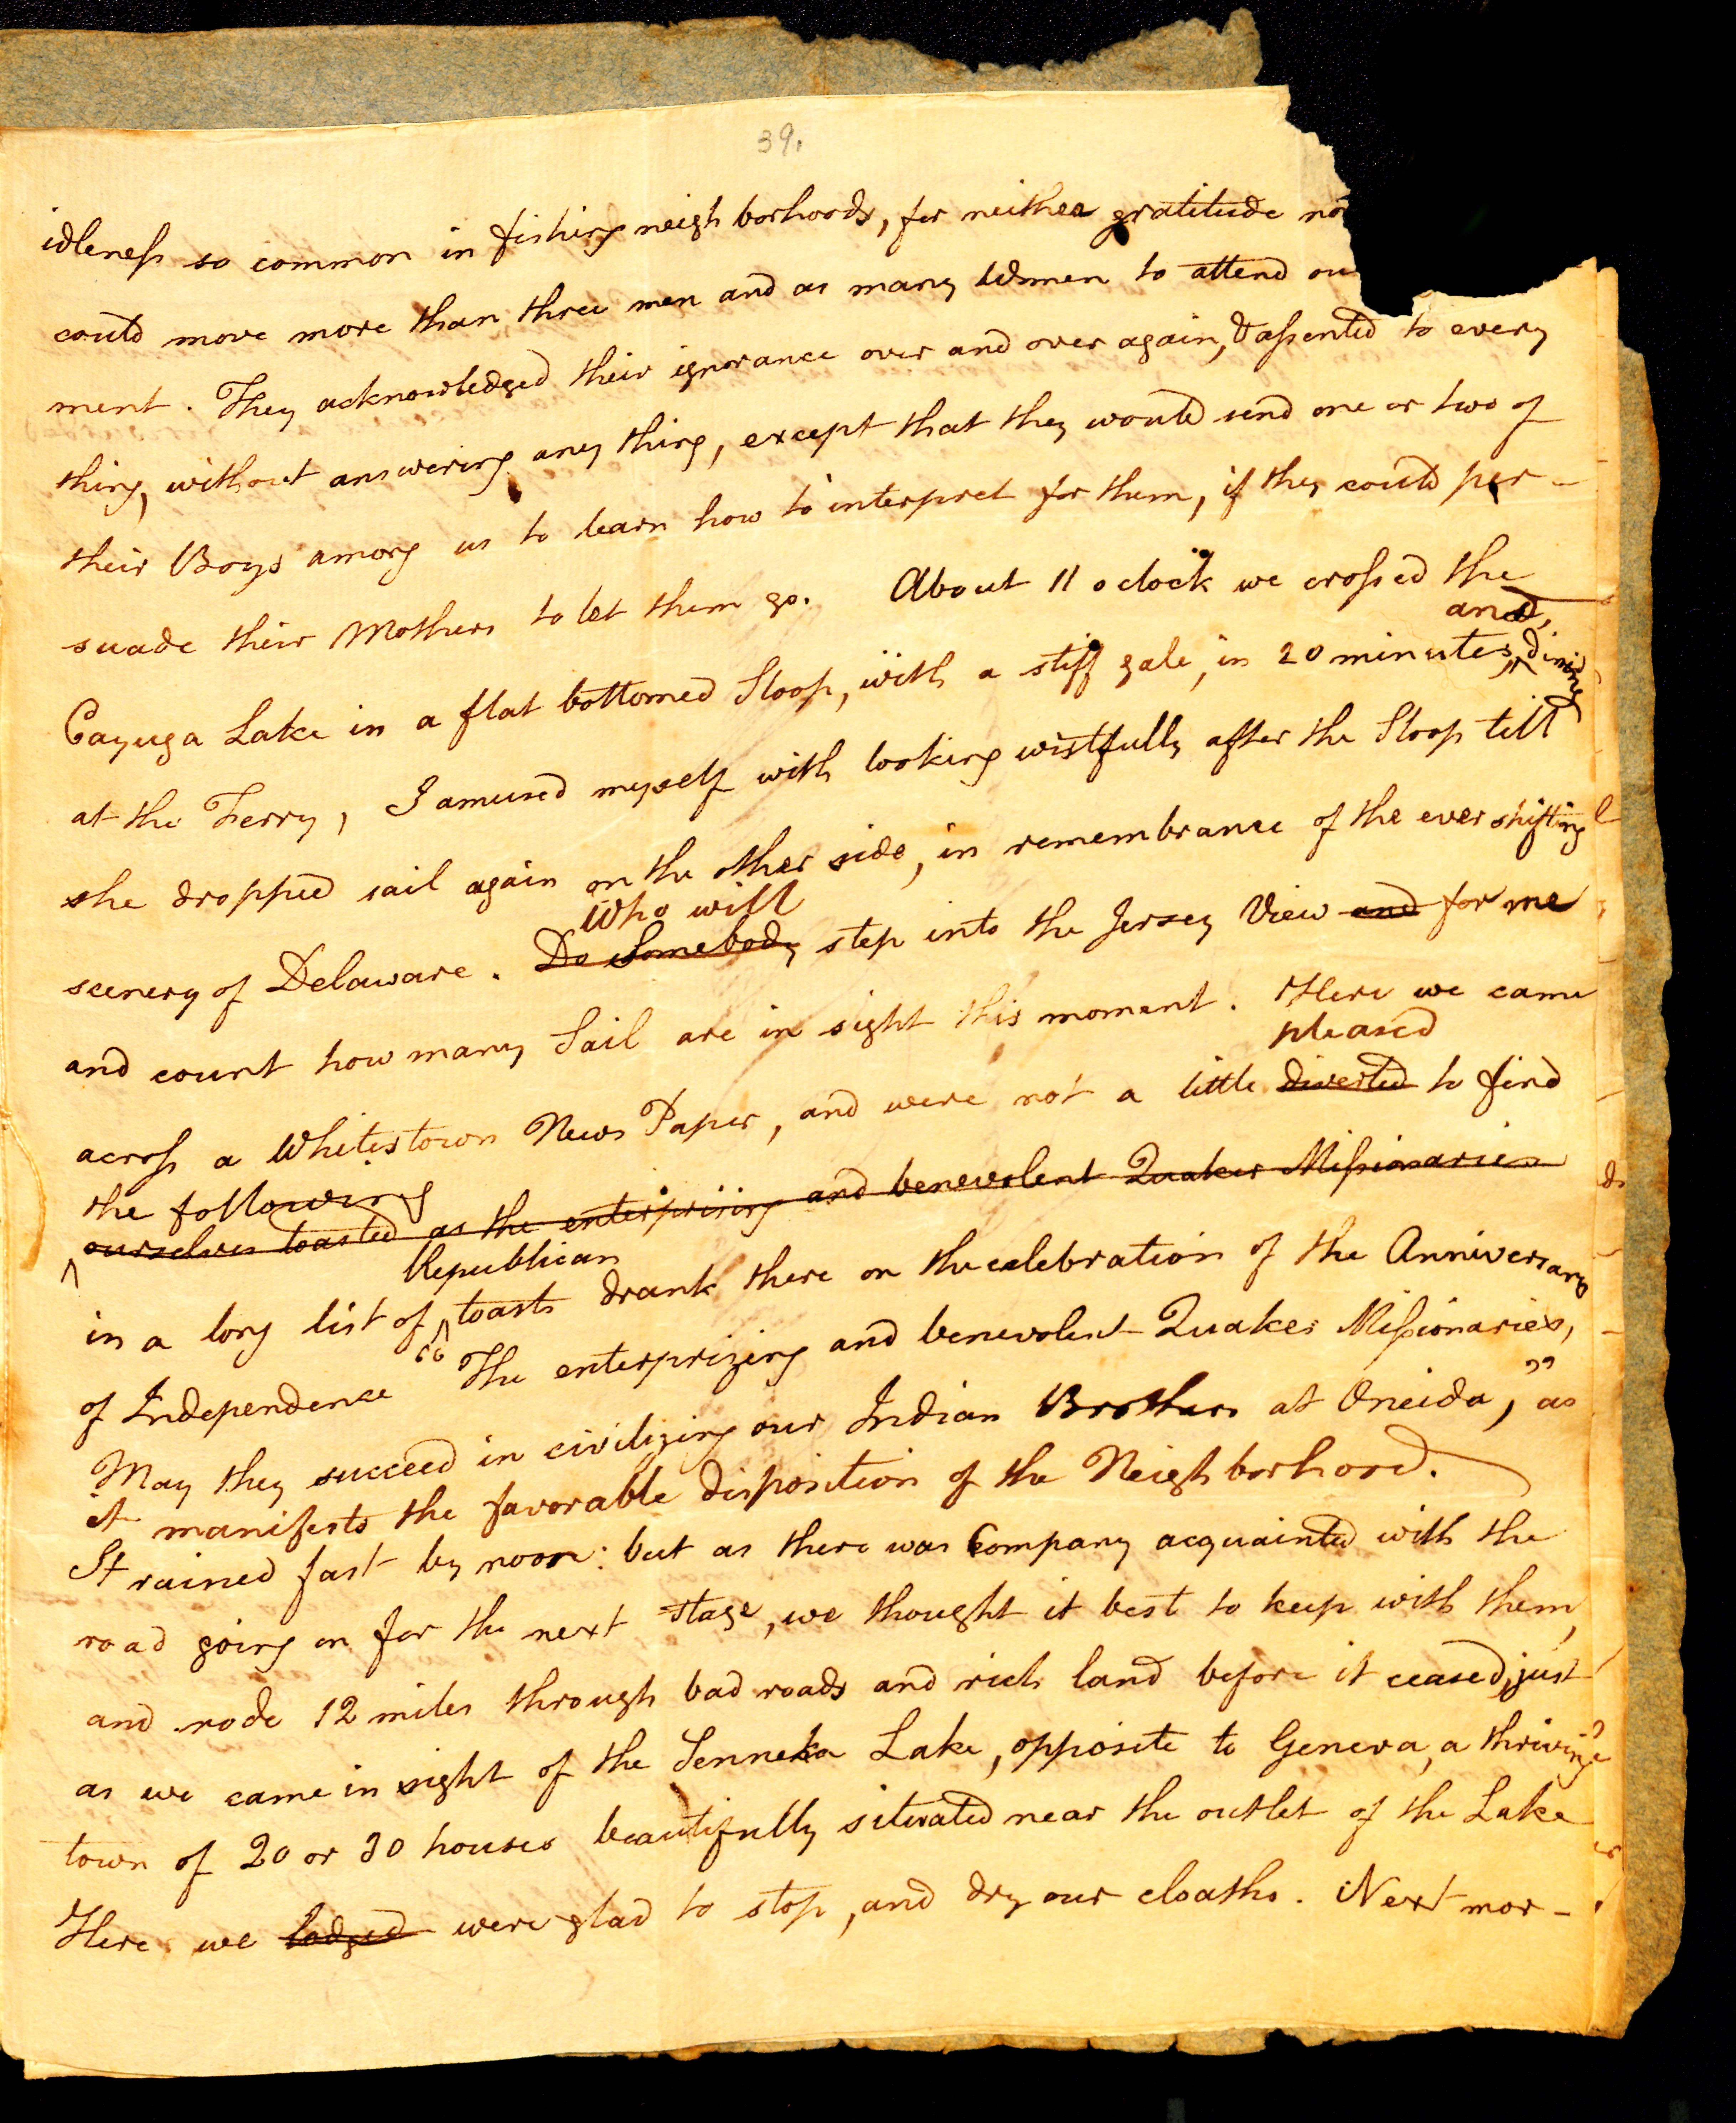 39.
idleness so common in fishing neighborhoods, for neither gratitude no
could move more than three men and as many Women to attend ou
ment. They acknowledged their ignorance over and over again, & assented to every
thing, without answering any thing, except that they would send one or two of
their Boys among us to learn how to interpret for them, if they could per-
suade their Mothers to let them go. About 11 o clock we crossed the
and,
Cayuga Lake in a flat bottomed Sloop, with a stiff gale, in 20 minutes, dining
at the Ferry, I amused myself with looking wistfully after the Sloop till
she dropped sail again on the other side, in remembrance of the ever shifting
Who will
scenery of Delaware. Do Somebody step into the Jersey View and for me
and count how many Sail are in sight this moment. Here we came
pleased
across a Whitestown News Paper, and were not a little diverted to find
the following
ourselves toasted as the enterprising and benevolent Quaker Missionaries
Republican
in a long list of toasts drank there on the celebration of the Anniversary
of Independence "The enterprizing and benevolent Quaker Missionaries,
May they succeed in civilizing our Indian Brothers at Oneida," as
it manifests the favorable disposition of the Neighborhood.
It rained fast by noon: but as there was Company acquainted with the
road going on for the next stage, we thought it best to keep with them,
and rode 12 miles through bad roads and rich land before it ceased, just
as we came in sight of the Senneka Lake, opposite to Geneva, a thriving
town of 20 or 30 houses beautifully situated near the outlet of the Lake
Here we lodged were glad to stop, and dry our cloaths. Next mor-